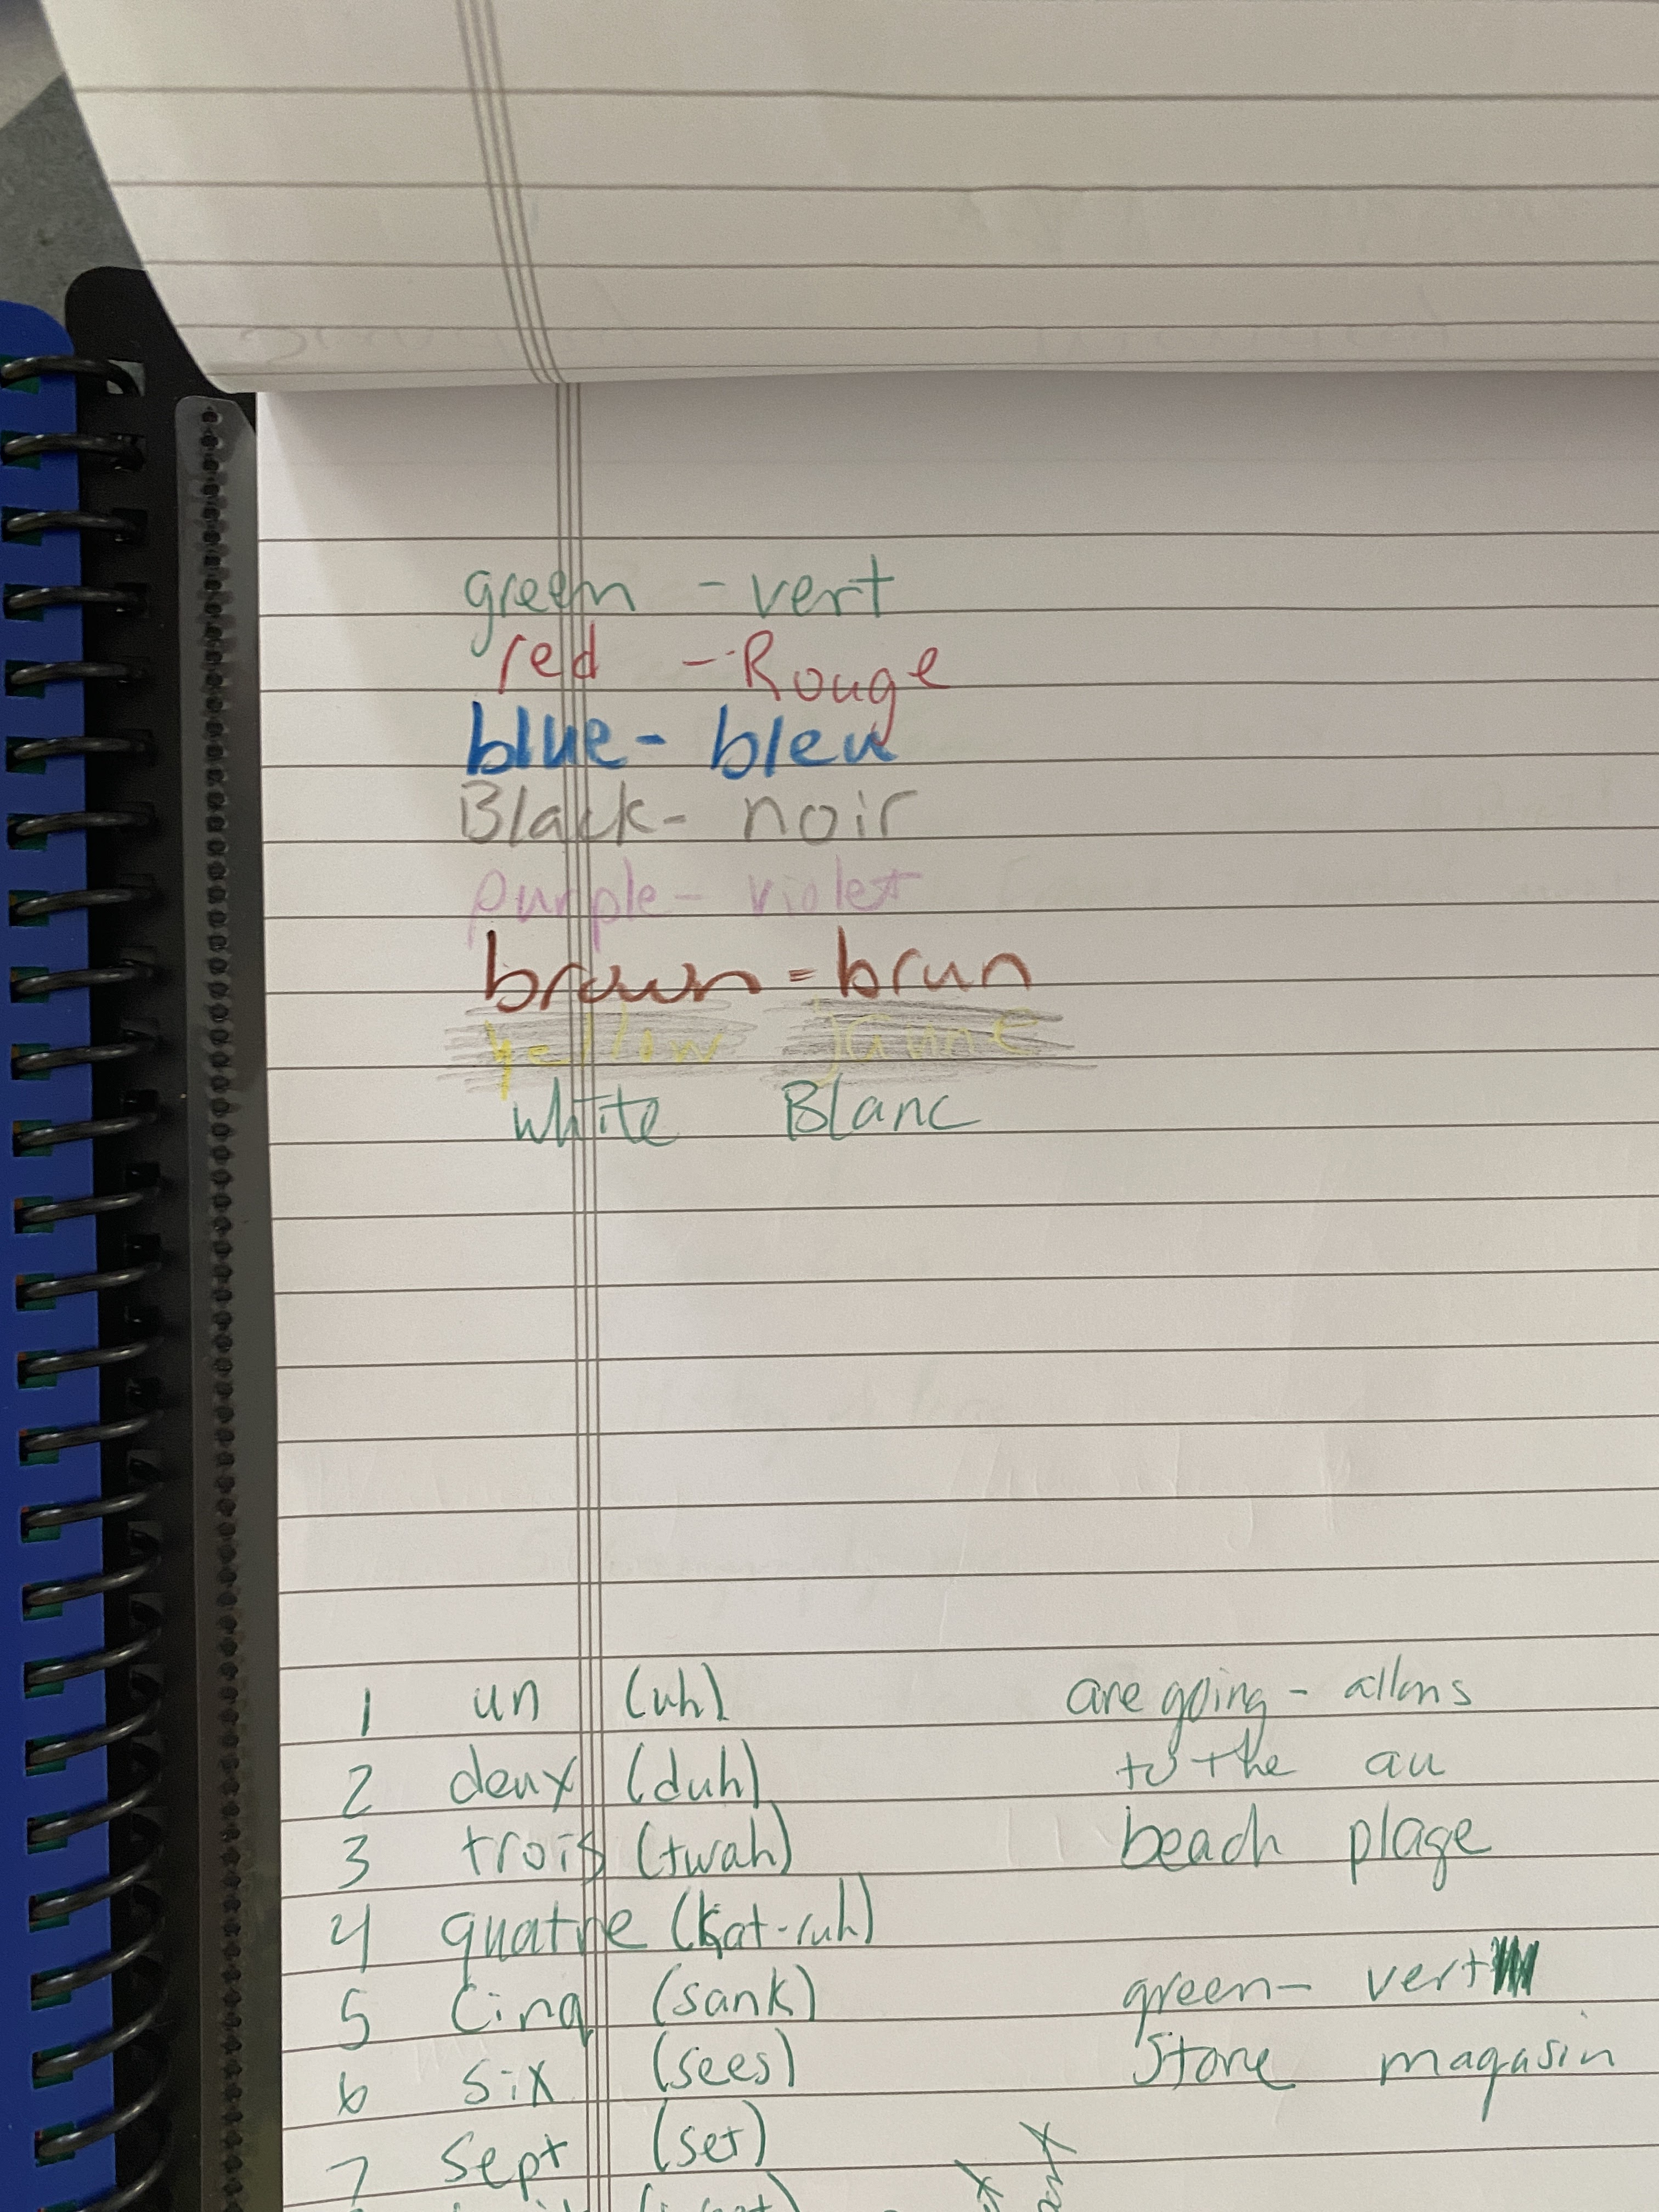 green - vert
red - Rouge
blue - bleu
Black - noir
purple - violet
brown - brun
yellow jaune
white Blanc
1 un (uh)
2 deux (duh)
3 trois (twah)
4 quatre (Kat-ruh)
5 Cinq (sank)
6 six (sees)
7 Sept (set)
are going - allons
to the au
beach plage
green - vert
Store magasin